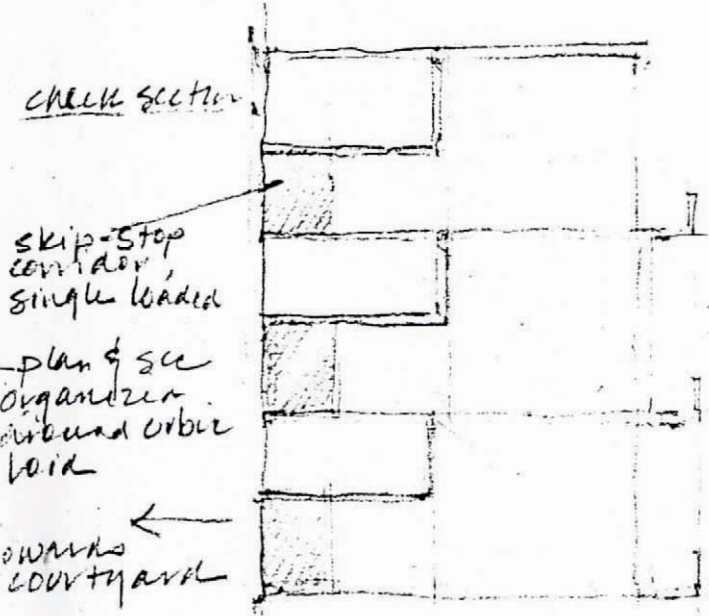 check section
skip-stop
corridor,
single loaded
-plan & sec
organized
around cubic
void
towards
courtyard